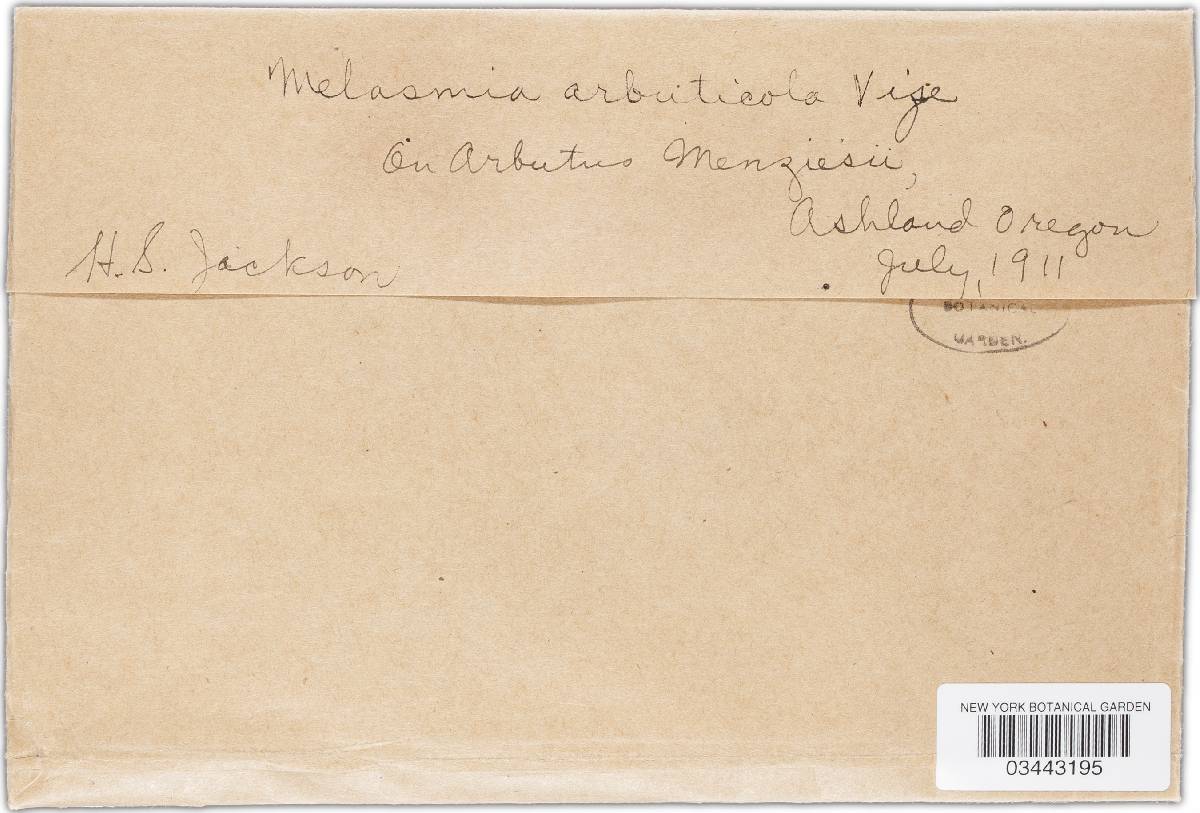 Melasmia arbuticola Vize
On Arbutus Menziesii,
Ashland Oregon
H. S. Jackson
July, 1911
BOTANICAL
GARDEN.
NEW YORK BOTANICAL GARDEN
03443195